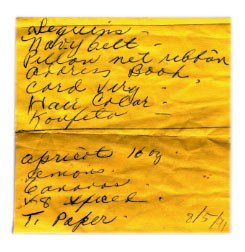 Sequins
Navy belt -
Pillow net ribbon
Address Book
Card
Hair Color -
apricot 16 oz
Lemons
Bananas
V-8 spiced
T. Paper
2/5/